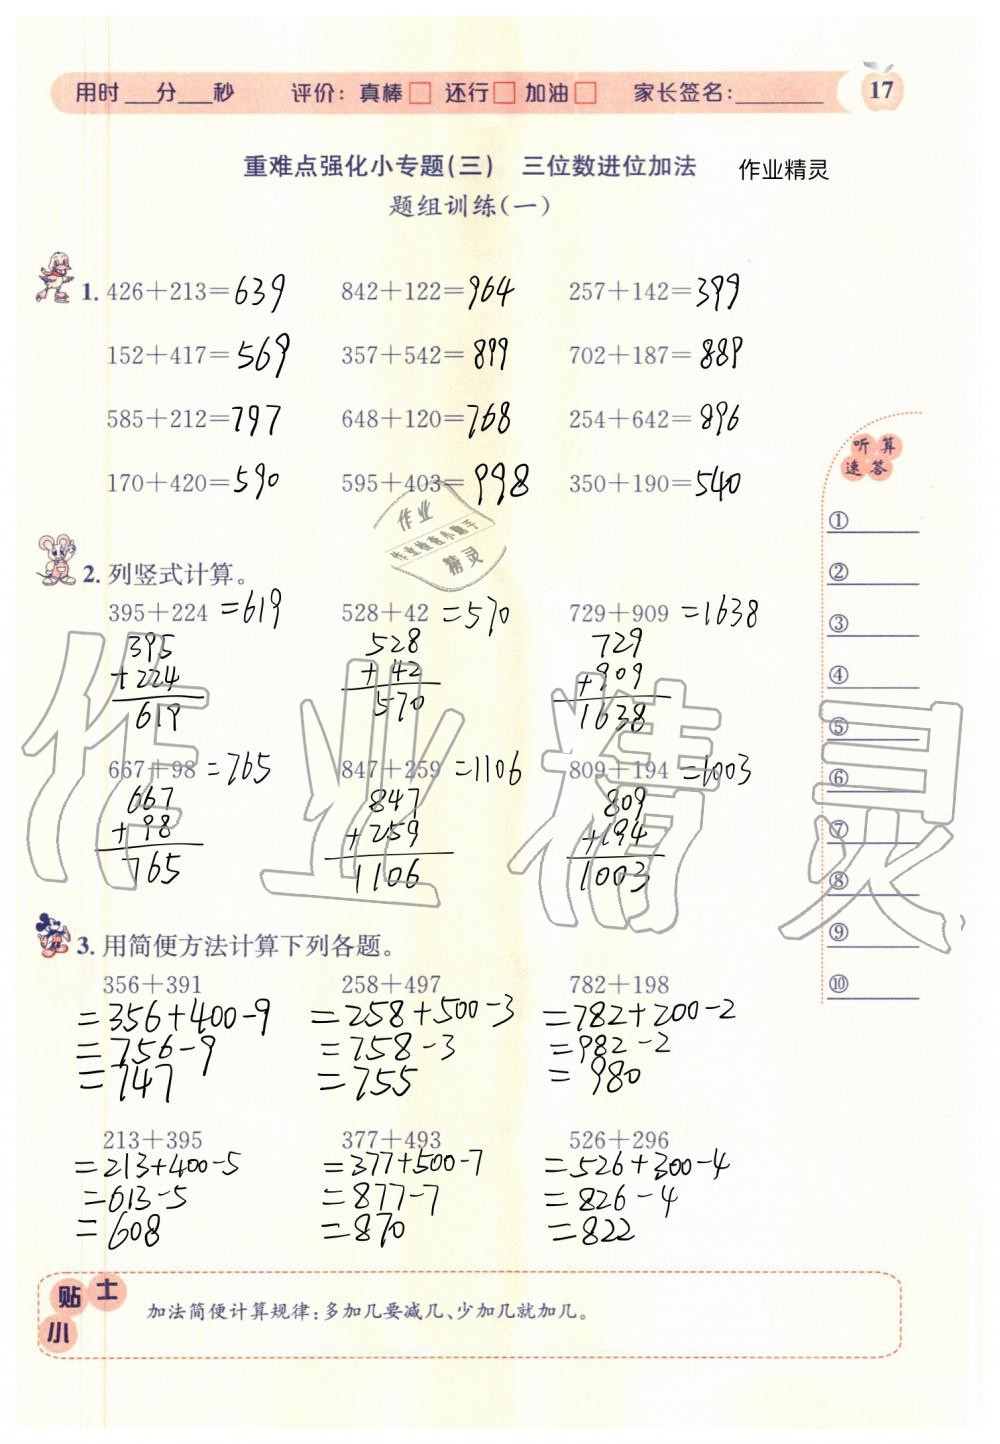 用时___分___秒 评价：真棒□ 还行□ 加油□ 家长签名：________ 17
重难点强化小专题（三） 三位数进位加法 作业精灵
题组训练（一）
1. 426+213=639 842+122=964 257+142=399
152+417=569 357+542=899 702+187=889
585+212=797 648+120=768 254+642=896
170+420=590 595+403=998 350+190=540
听算
速答
①
②
③
④
⑤
⑥
⑦
⑧
⑨
⑩
作业
作业检查小助手
精灵
2. 列竖式计算。
395+224=619 528+42=570 729+909=1638
395 528 729
+224 +42 +909
619 570 1638
667+98=765 847+259=1106 809+194=1003
667 847 809
+98 +259 +194
765 1106 1003
作业精灵
3. 用简便方法计算下列各题。
356+391 258+497 782+198
=356+400-9 =258+500-3 =782+200-2
=756-9 =758-3 =982-2
=747 =755 =980
213+395 377+493 526+296
=213+400-5 =377+500-7 =526+300-4
=613-5 =877-7 =826-4
=608 =870 =822
小贴士
加法简便计算规律：多加几要减几、少加几就加几。